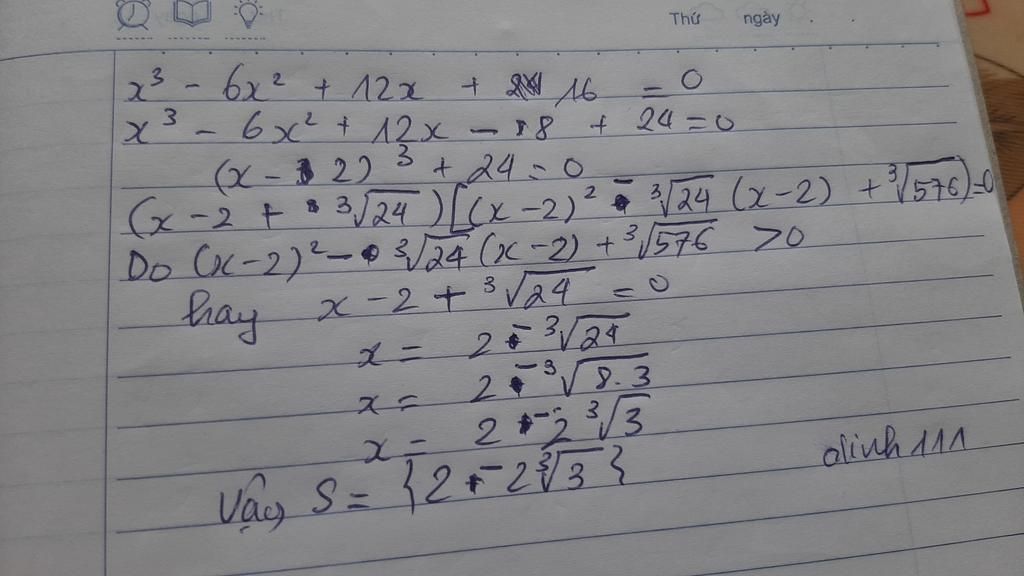 Thứ ngày . .
x³ - 6x² + 12x + 16 = 0
x³ - 6x² + 12x - 8 + 24 = 0
(x - 2)³ + 24 = 0
(x - 2 + ³√24)[(x - 2)² - ³√24 (x - 2) + ³√576) = 0
Do (x - 2)² - ³√24 (x - 2) + ³√576 > 0
hay x - 2 + ³√24 = 0
x = 2 - ³√24
x = 2 - ³√8.3
x = 2 - 2 ³√3
Vậy S = {2 - 2³√3}
dinh111